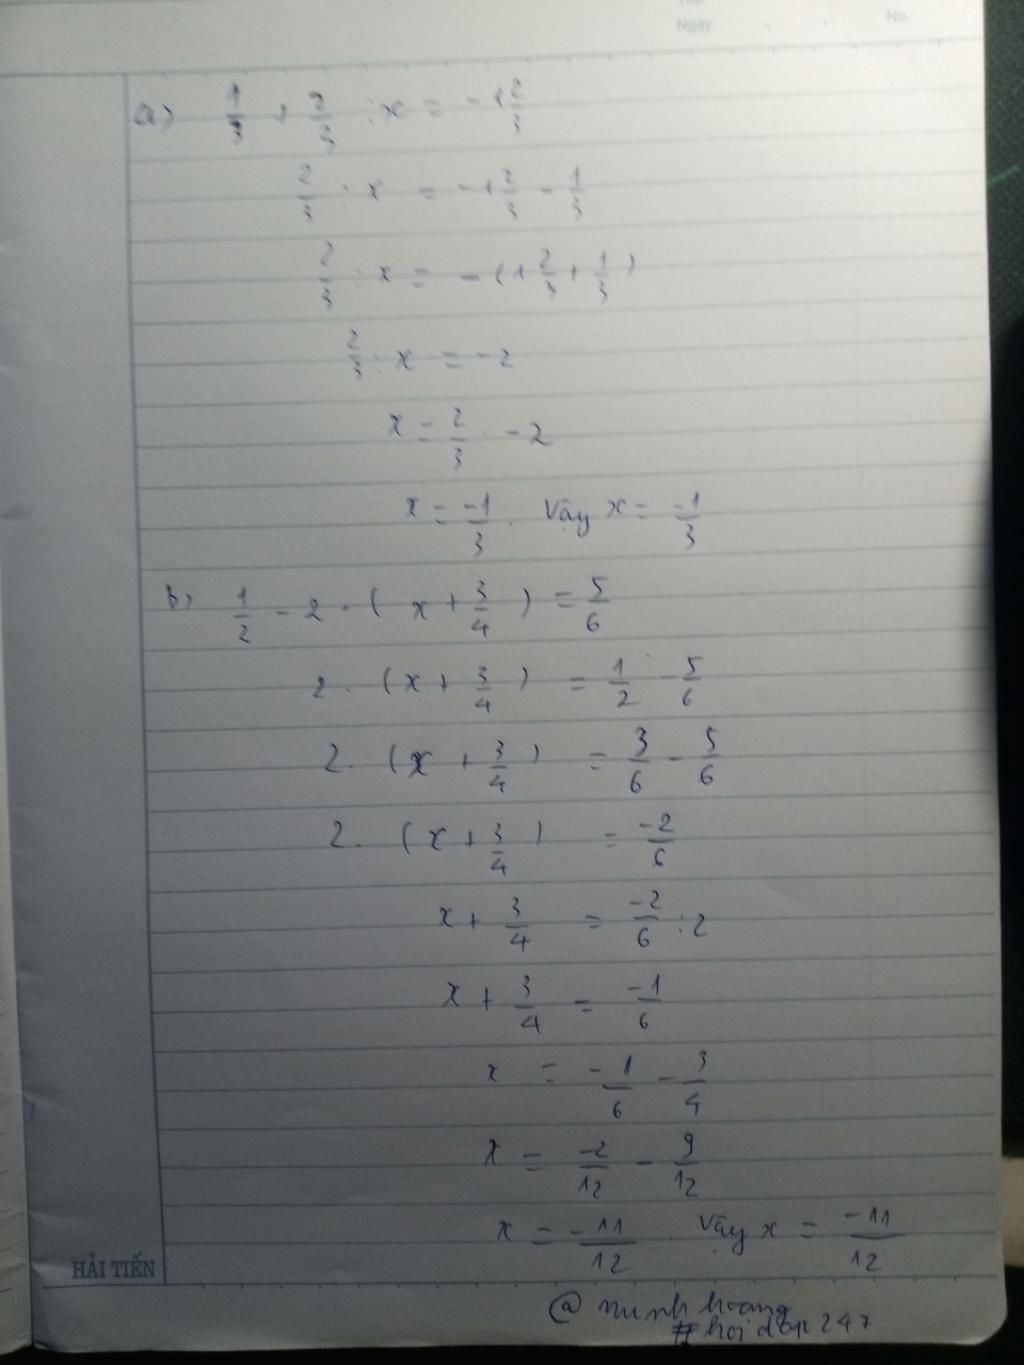 Ngày No.
a) 1/3 + 2/3 : x = -1 2/3
2/3 : x = -1 2/3 - 1/3
2/3 : x = -(1 2/3 + 1/3)
2/3 : x = -2
x = 2/3 : -2
x = -1/3. Vậy x = -1/3
b) 1/2 - 2 . (x + 3/4) = 5/6
2 . (x + 3/4) = 1/2 - 5/6
2 . (x + 3/4) = 3/6 - 5/6
2 . (x + 3/4) = -2/6
x + 3/4 = -2/6 : 2
x + 3/4 = -1/6
x = -1/6 - 3/4
x = -2/12 - 9/12
x = -11/12. Vậy x = -11/12
HẢI TIẾN
@ minh hoang
# hoi dap 247